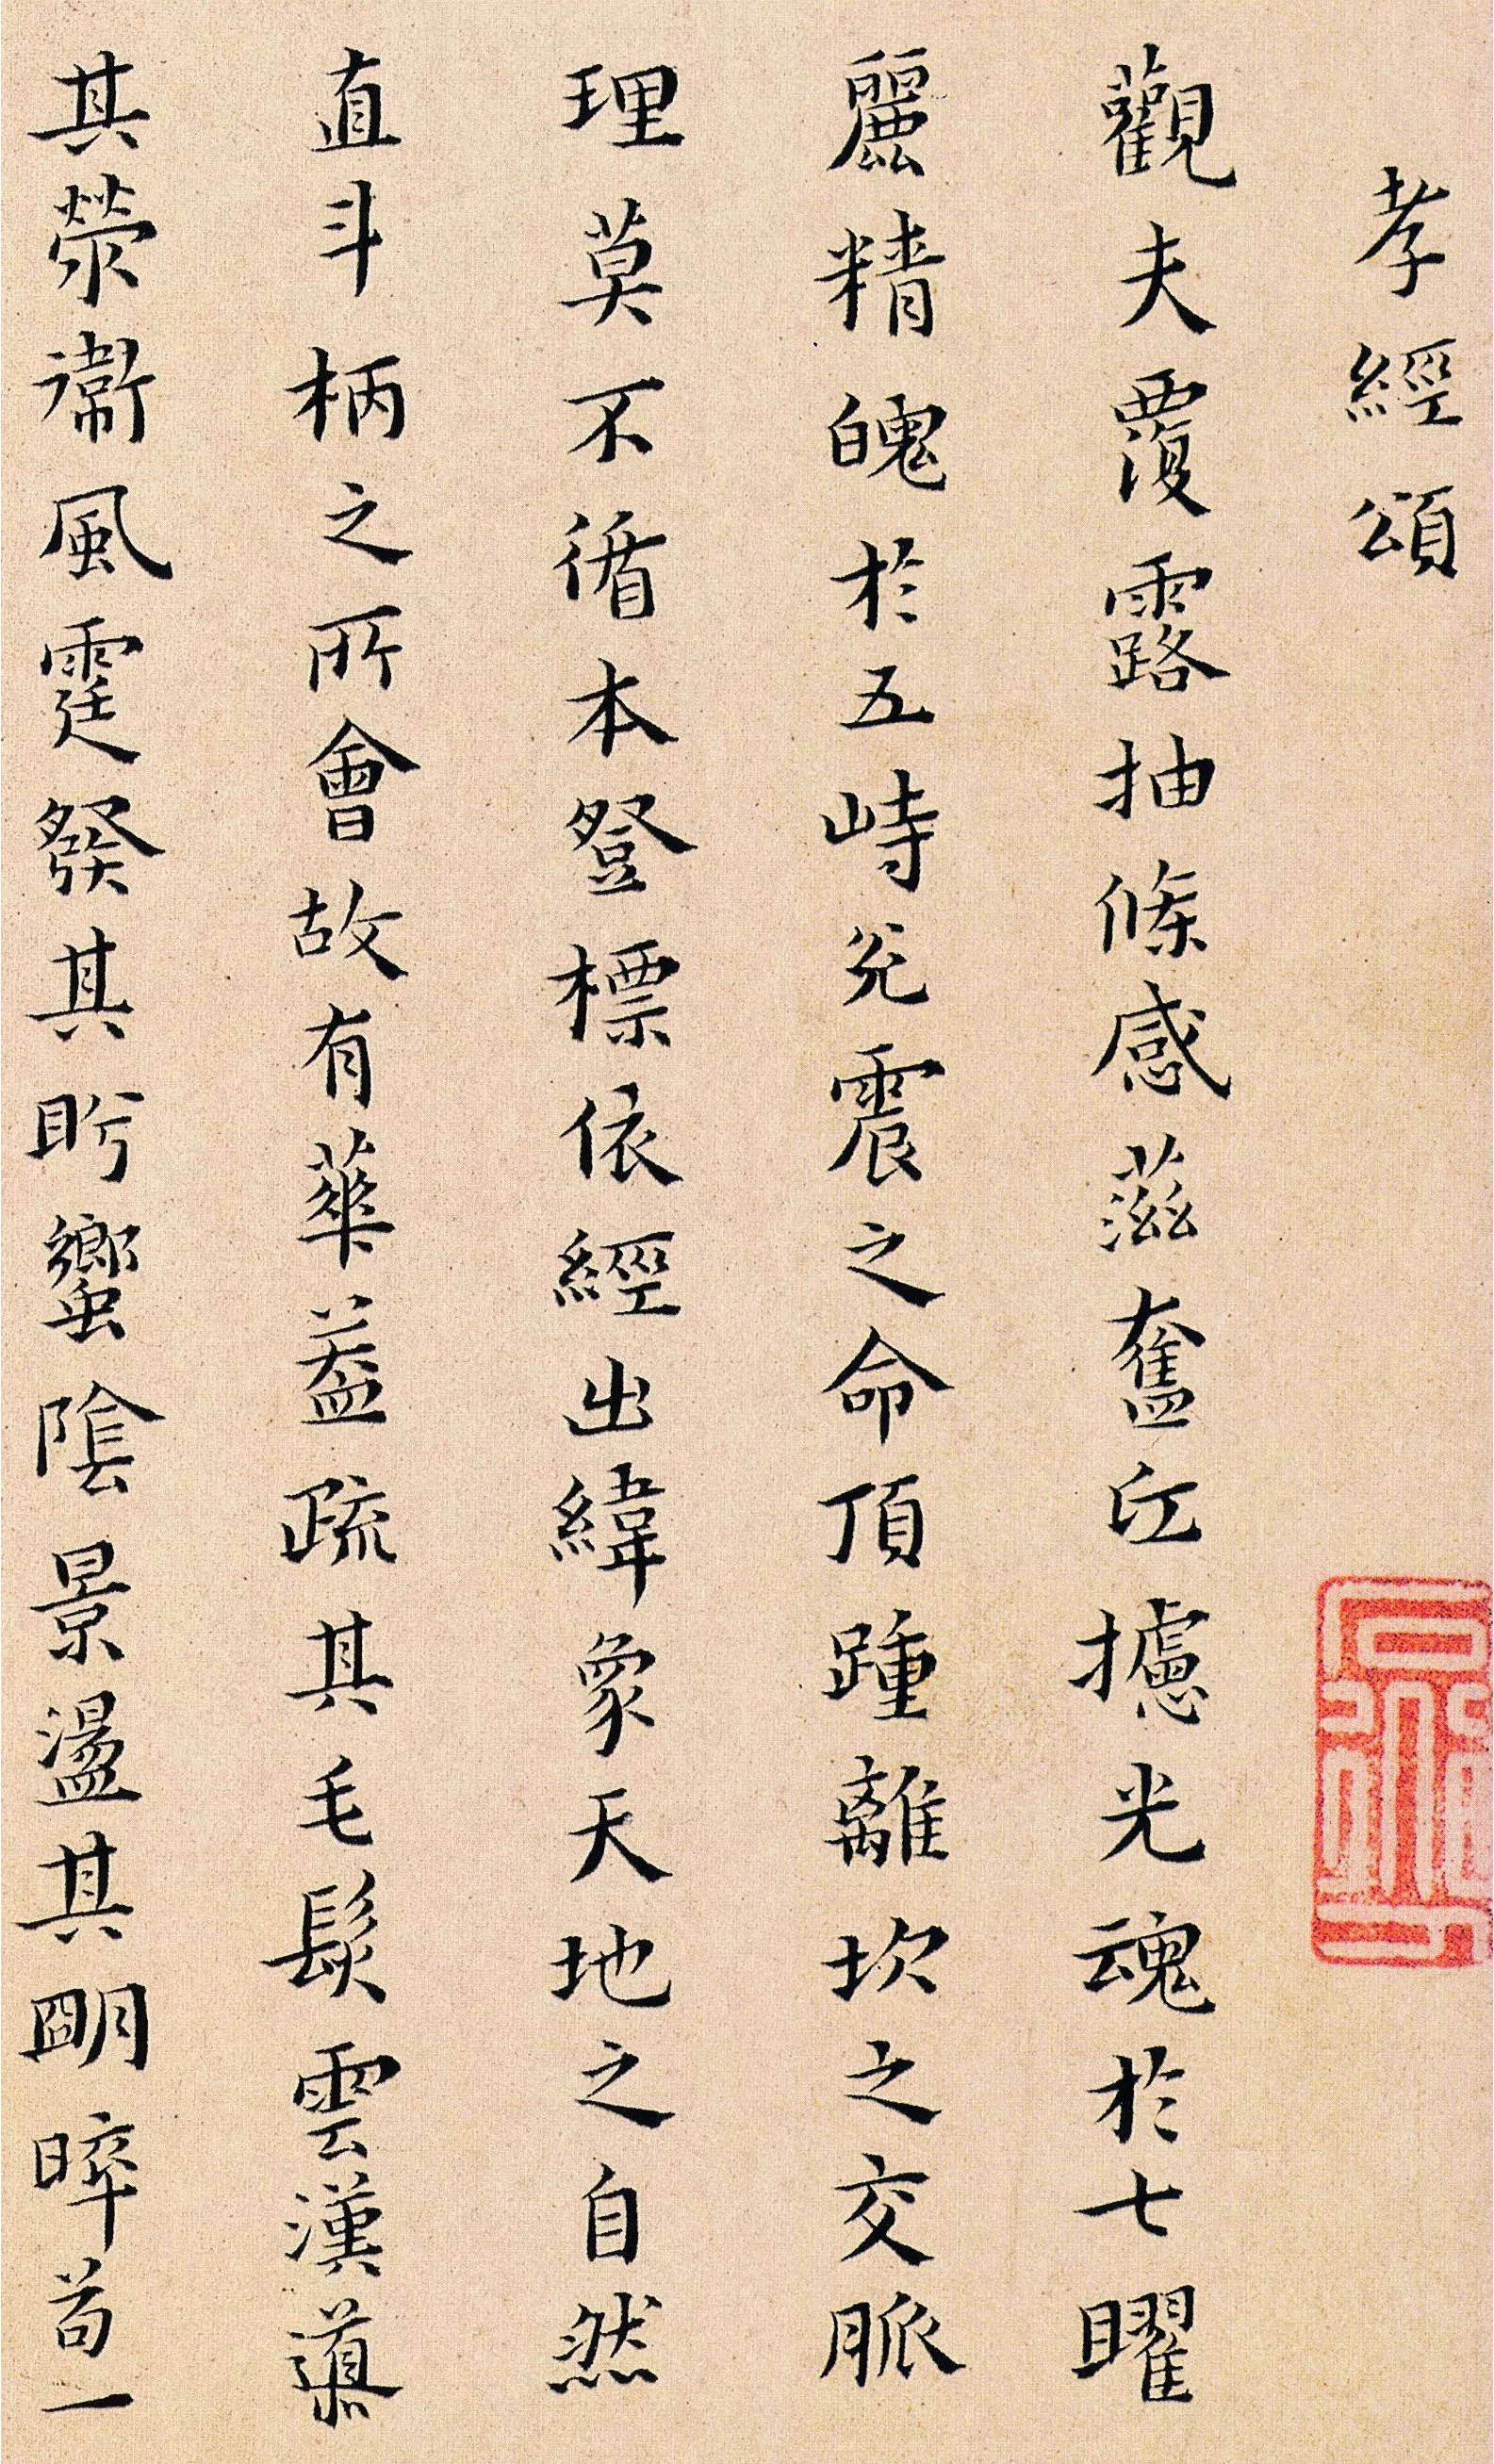 孝經頌
觀夫覆露抽條感薀奮丘攄光魂於七曜
麗精魄於五峙兊震之命頂踵離坎之交脈
理莫不循本登標依經出緯象天地之自然
直斗柄之所會故有華葢疏其毛髮雲漢導
其滎衞風霆發其盻蠁陰景盪其明晬苟一